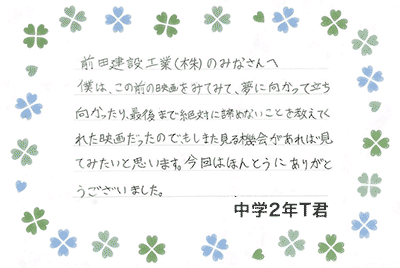 前田建設工業(株)のみなさんへ
僕は、この前の映画をみてみて、夢に向かって立ち
向かったり、最後まで絶対に諦めないことを教えてく
れた映画だったのでもしまた見る機会があれば見
てみたいと思います。今回はほんとうにありがと
うございました。
中学2年T君